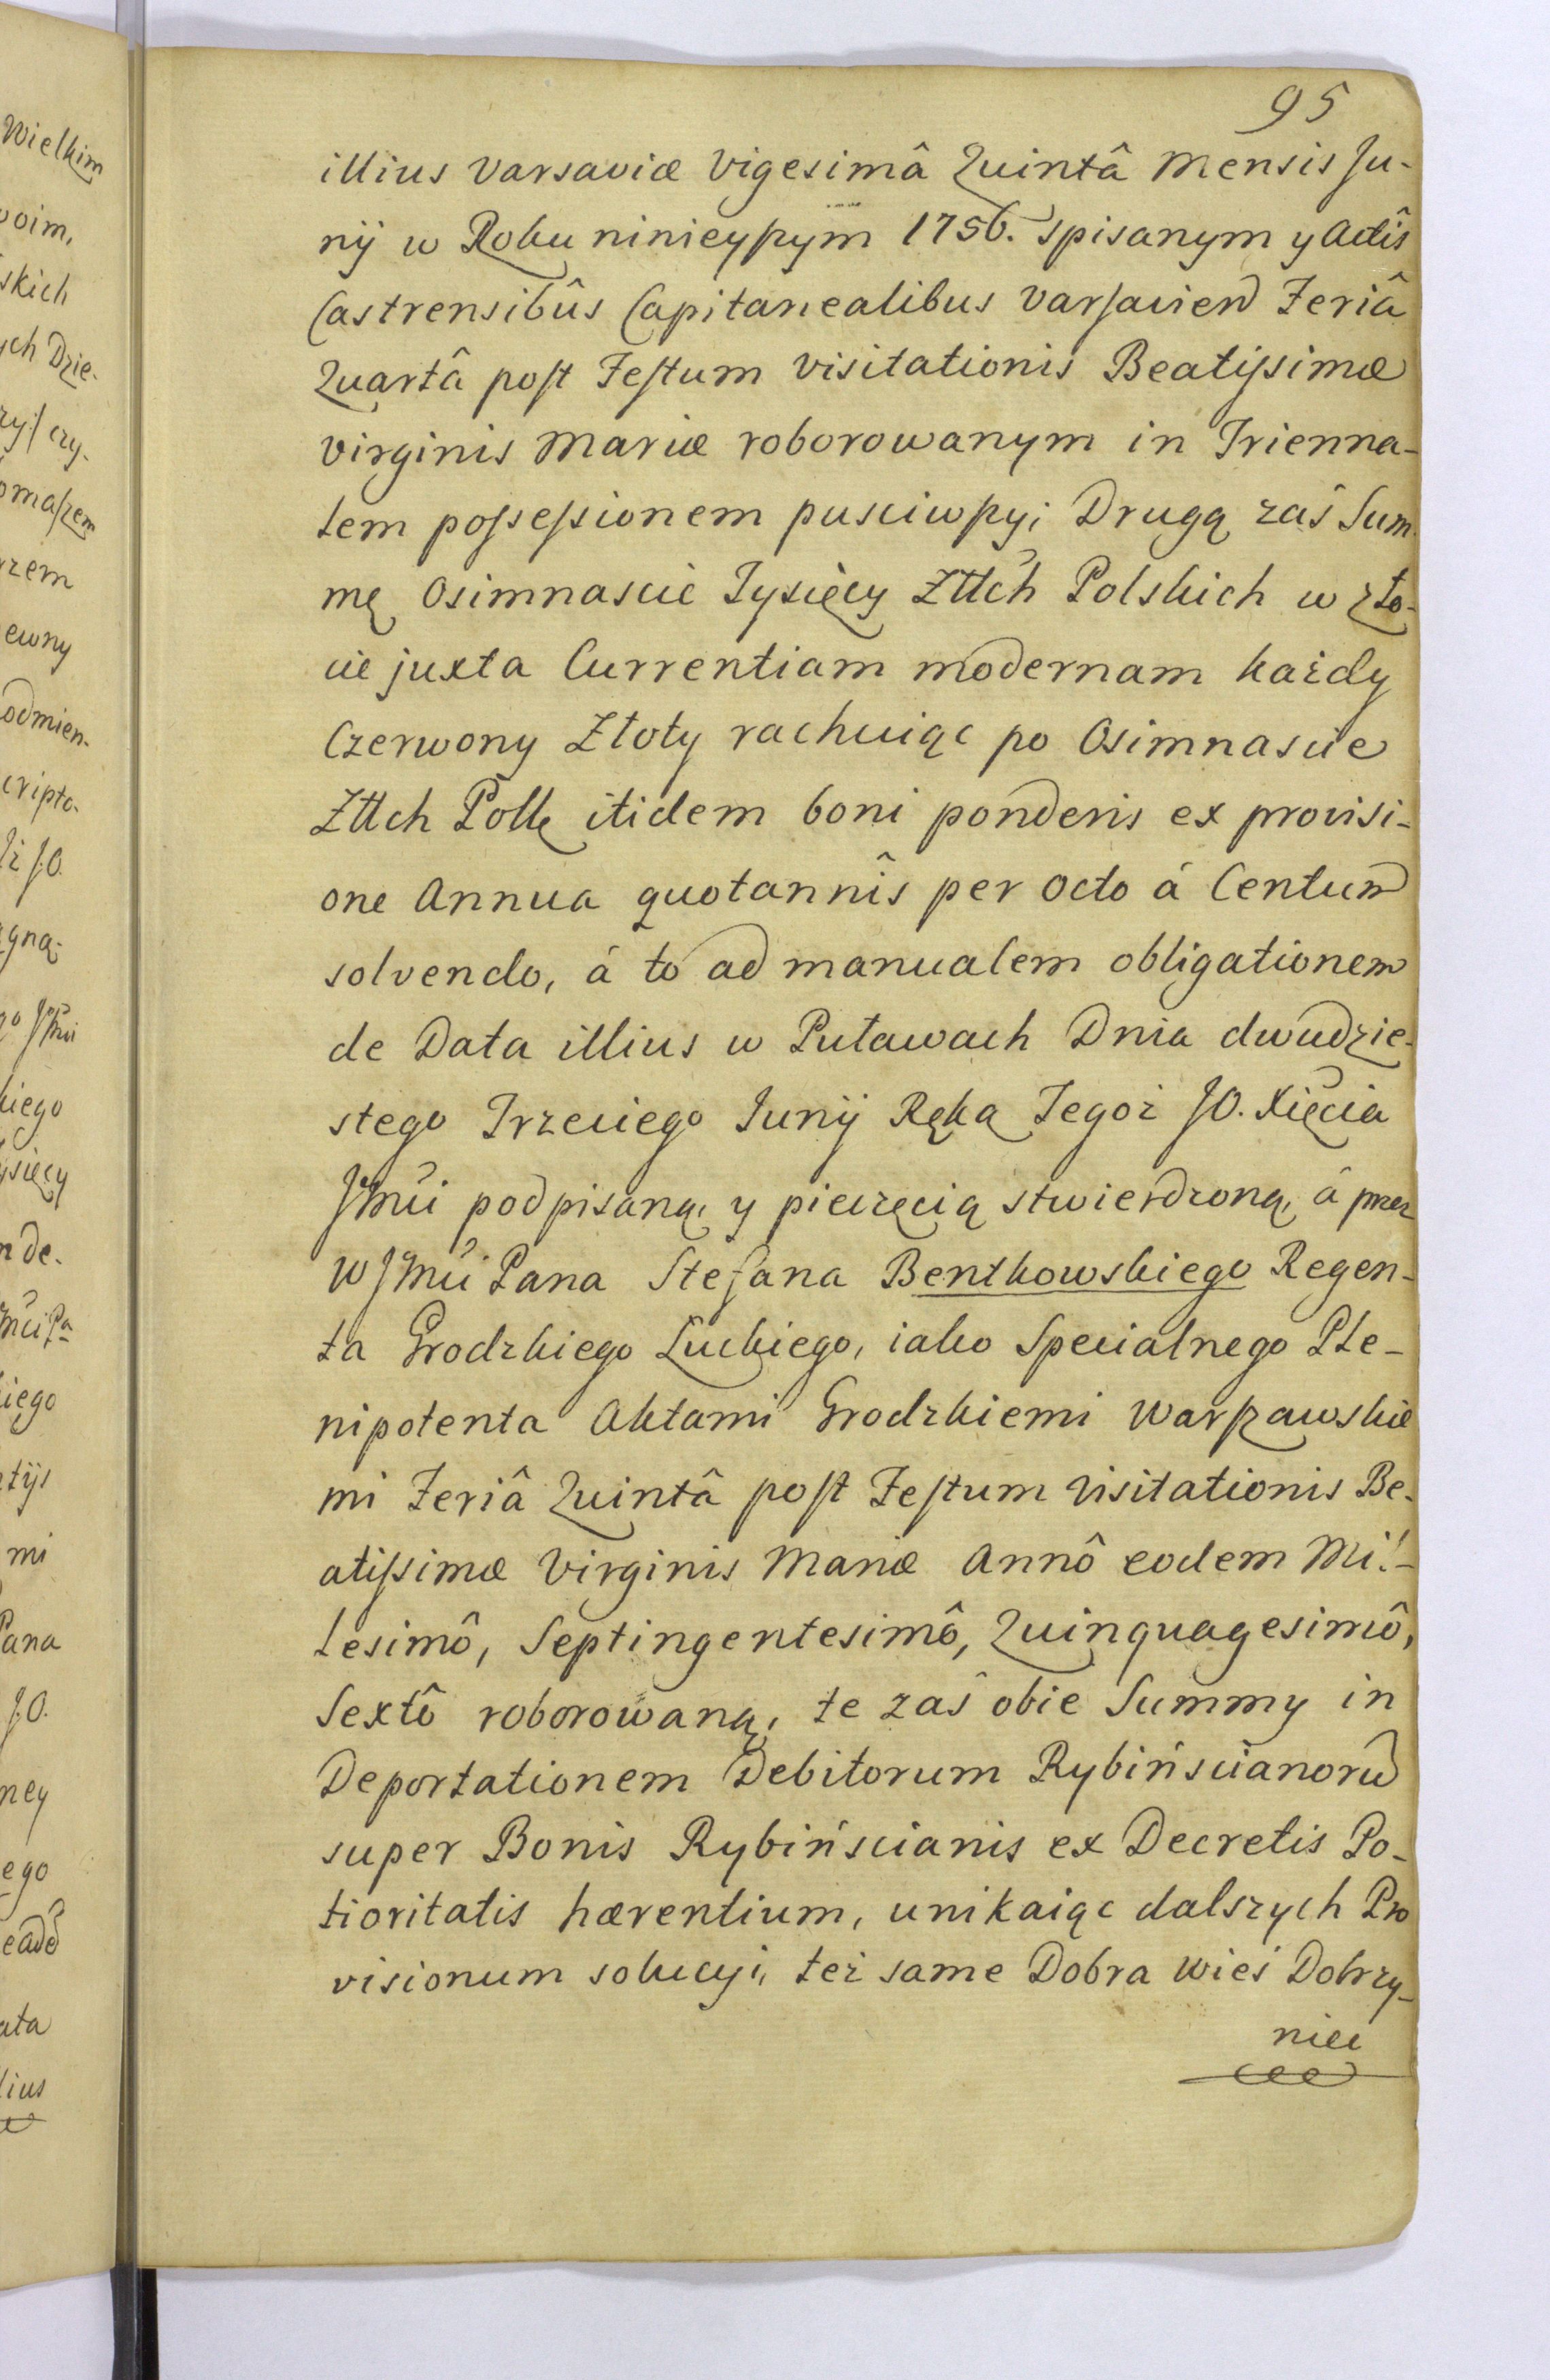 95
illius Varsaviæ Vigesimâ Quintâ Mensis Ju-
nij w Roku ninieyszym 1756. spisanym y Actîs
Castrensibûs Capitanealibus Varsavien Feriâ
Quartâ post Festum visitationis Beatissimæ
virginis Mariæ roborowanym in Trienna-
lem possessionem pusciwszy; Drugą zaś Sum-
mę Osimnascie Tysięcy Złłch Polskich w zło-
cie juxta Currentiam modernam każdy
Czerwony Złoty rachuiąc po Osimnascie
Złłch Polk itidem boni ponderis ex provisi-
one Annua quotannîs per octo á Centum
solvendo, á to ad manualem obligationem
de Data illius w Puławach Dnia dwudzie-
stego Trzeciego Junij Ręką Tegoż JO. Xięcia
JMći podpisaną, y pieczęcią stwierdzoną, á przez
W JMći Pana Stefana Bentkowskiego Regen-
ta Grodzkiego Łuckiego, iako Specialnego Ple-
nipotenta Aktami Grodzkiemi Warszawskie
mi Feriâ Quintâ post Festum Visitationis Be-
atissimæ Virginis Mariæ Annô eodem Mil-
lesimô, Septingentesimô, Quinquagesimô,
Sextô roborowaną, te zaś obie Summy in
Deportationem Debitorum Rybińscianorum
super Bonis Rybińscianis ex Decretis Po-
tioritatis hærentium, unikaiąc dalszych Pro
visionum solucyi, też same Dobra wieś Dobrzy-
niec
Wielkim
woim,
skich
ych Dzie-
czy-
omaszem
rzem
ewny
odmien-
cripto-
JO.
gną-
go JMći
kiego
ysięcy
n de-
Mći Pa-
kiego
tijs
mi
Pana
J.O.
ney
ego
ata
lius